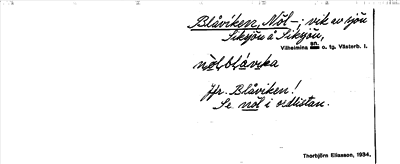 Blåviken, Nöl-; vik av sjön
Siksjön å Siksjön,
Vilhelmina sn. o. tg. Västerb. l.
nö̀lblåvika
Jfr. Blåviken!
Se nöl i ordlistan.
Thorbjörn Eliasson, 1934.